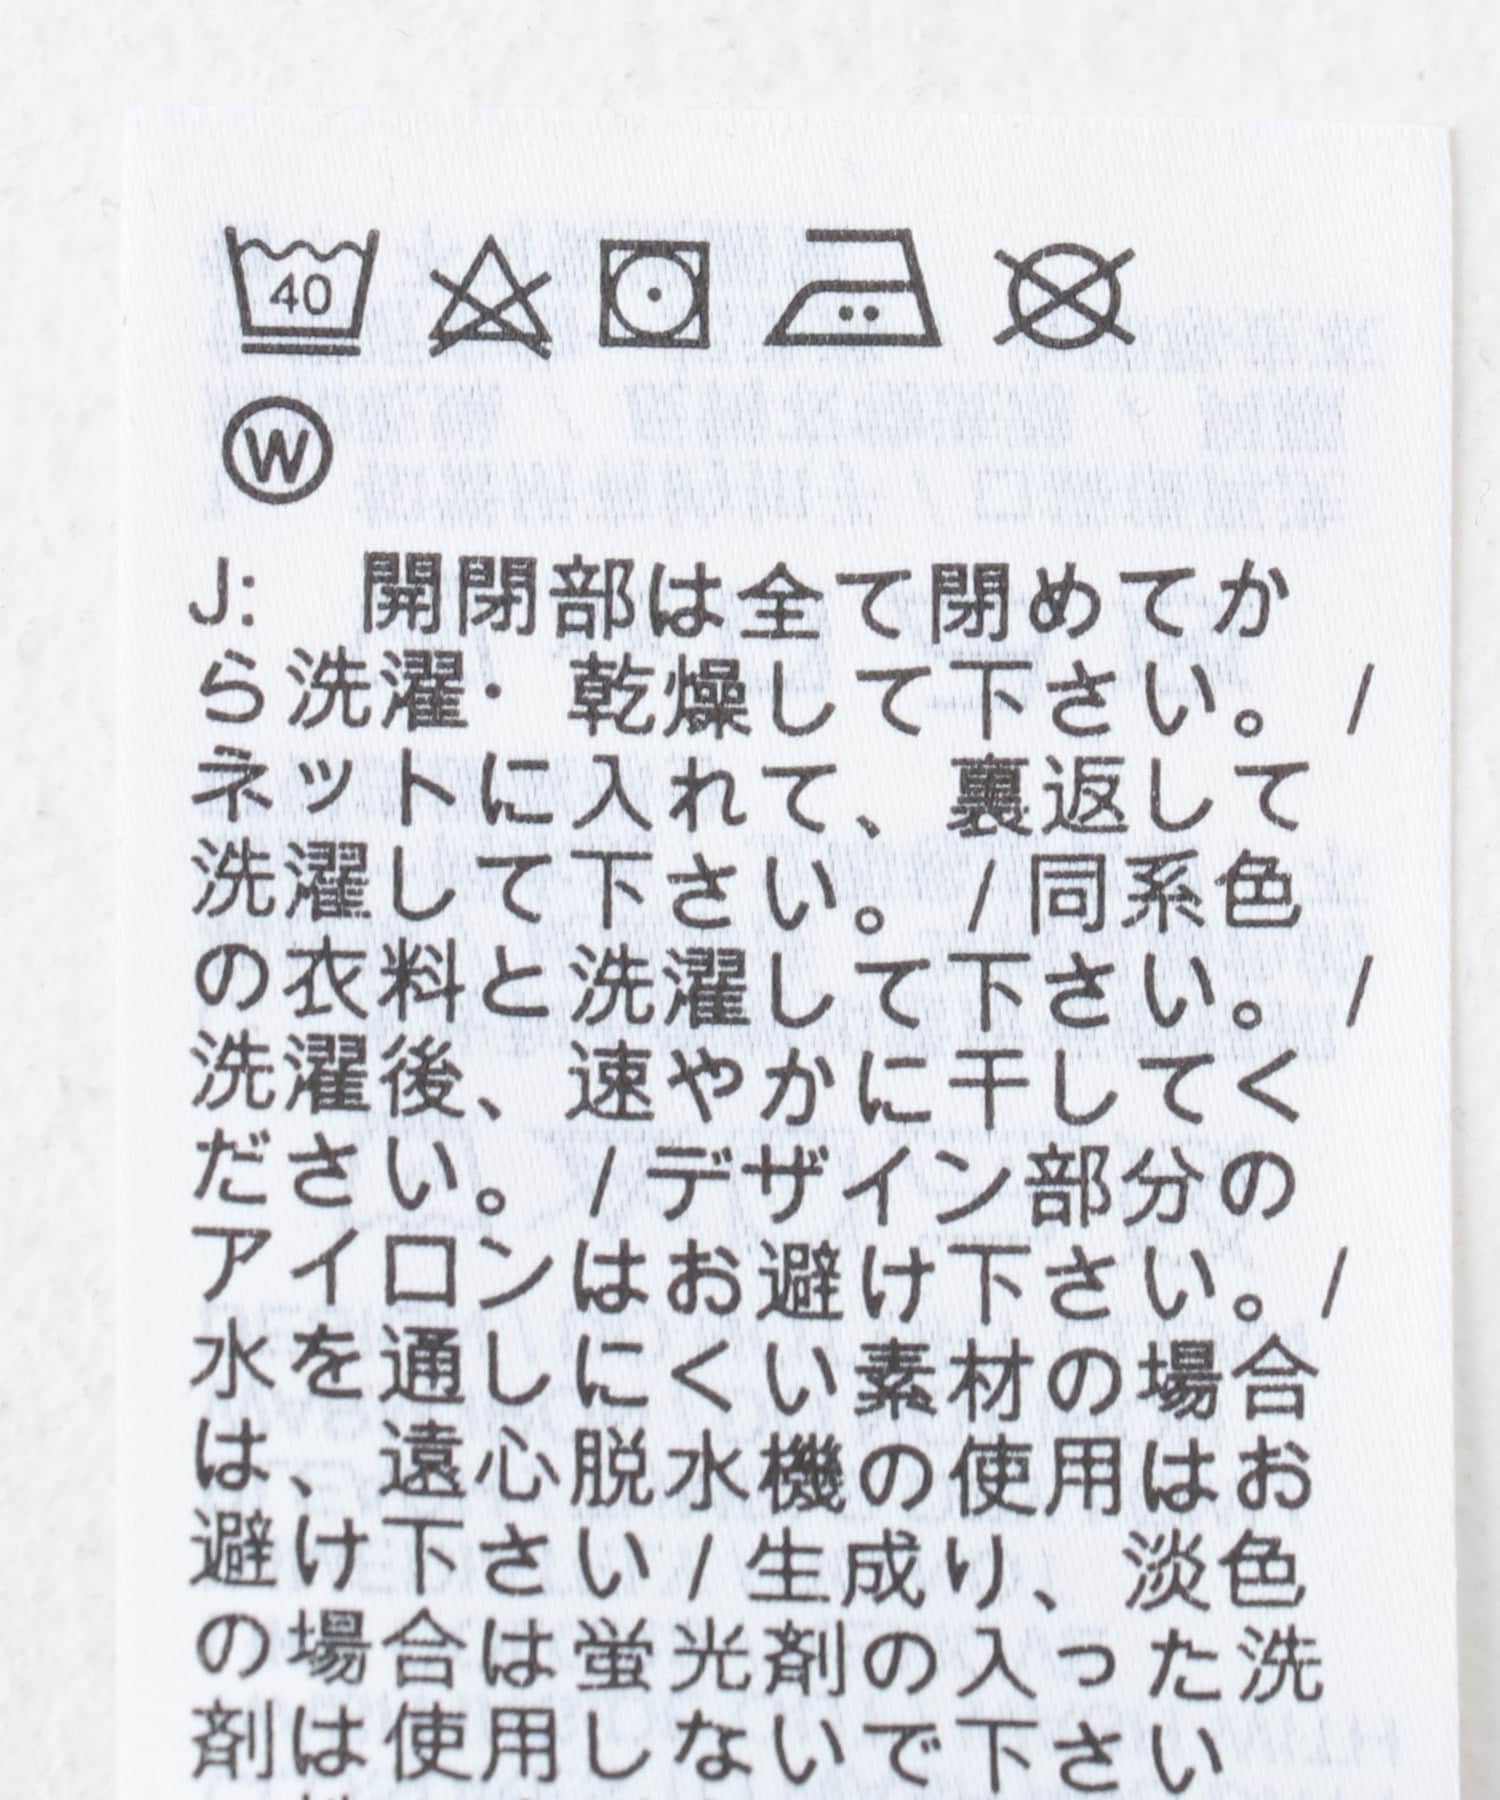 40
W
J:　開閉部は全て閉めてか
ら洗濯・乾燥して下さい。/
ネットに入れて、裏返して
洗濯して下さい。/同系色
の衣料と洗濯して下さい。/
洗濯後、速やかに干してく
ださい。/デザイン部分の
アイロンはお避け下さい。/
水を通しにくい素材の場合
は、遠心脱水機の使用はお
避け下さい/生成り、淡色
の場合は蛍光剤の入った洗
剤は使用しないで下さい